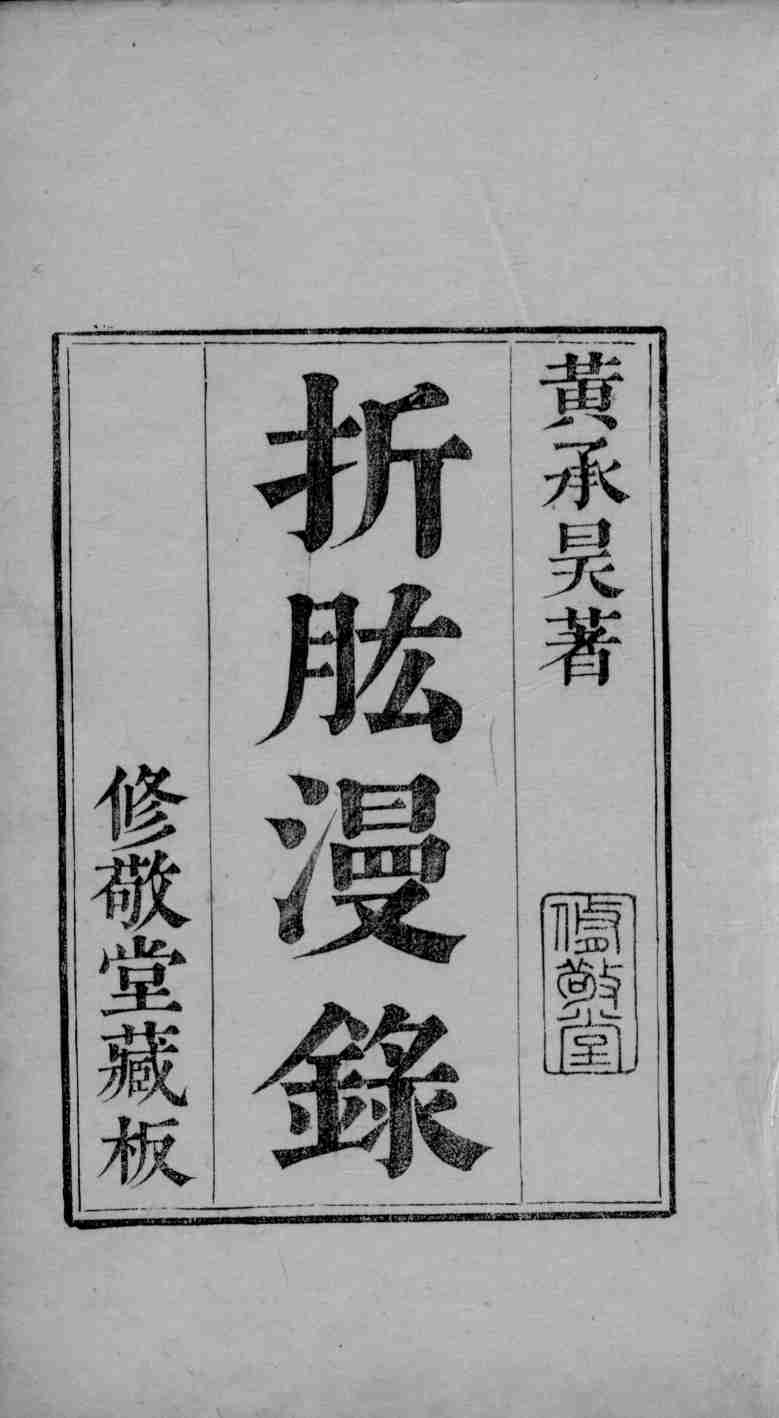 黃承昊著
修敬堂
折肱漫錄
修敬堂藏板